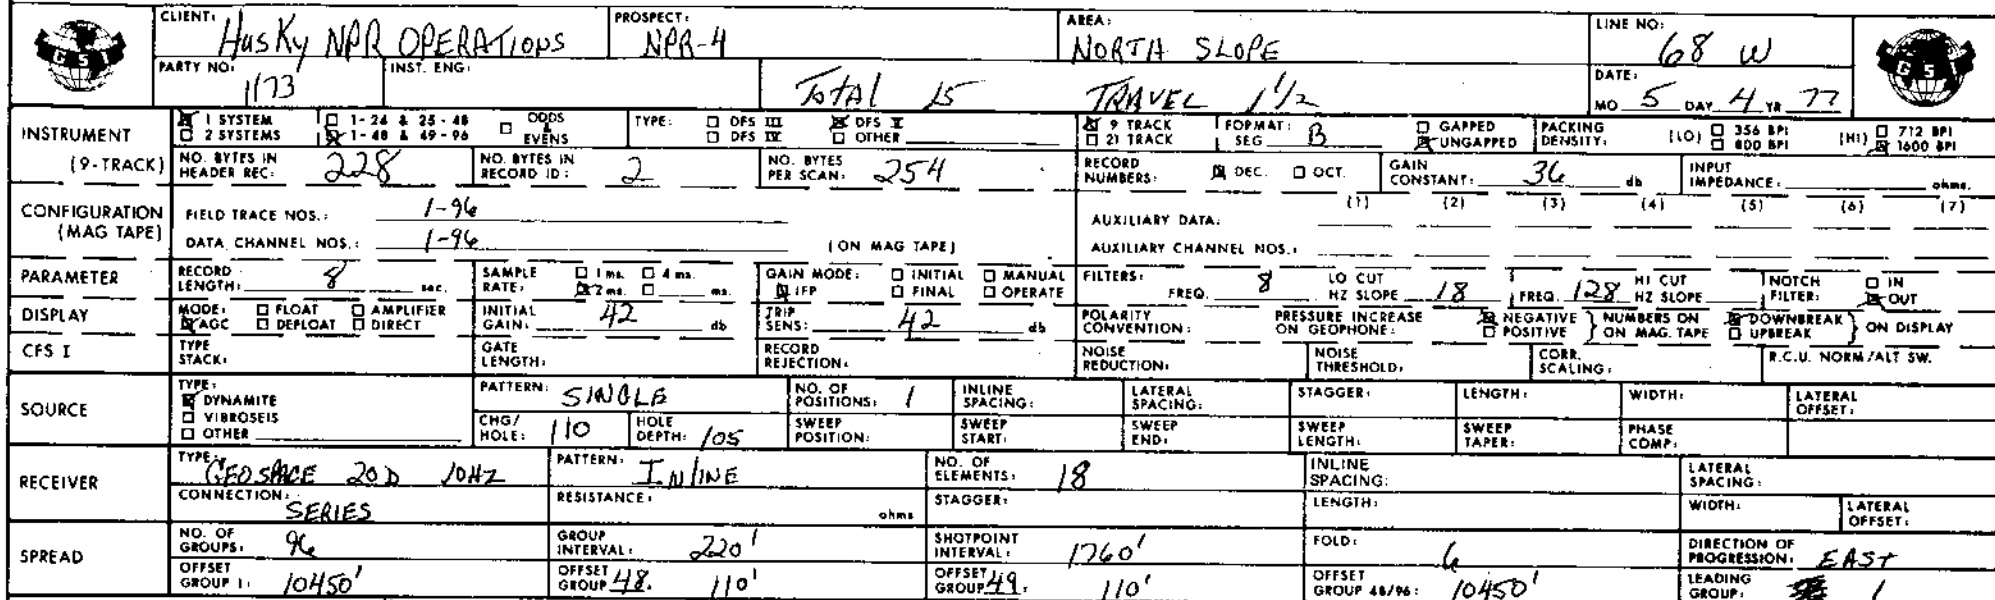 CLIENT: Husky NPR OPERATIONS PROSPECT: NPR-4 AREA: NORTH SLOPE LINE NO: 68 W
GSI
PARTY NO: 1173 INST. ENG: Total 15 TRAVEL 1 1/2 DATE: MO 5 DAY 4 YR 77
GSI
INSTRUMENT (9-TRACK) 1 SYSTEM 1-24 & 25-48 ODDS & EVENS TYPE: DFS III DFS V 9 TRACK FORMAT: SEG B GAPPED PACKING DENSITY: (LO) 356 BPI (HI) 712 BPI
2 SYSTEMS 1-48 & 49-96 DFS IV OTHER 21 TRACK UNGAPPED 800 BPI 1600 BPI
NO. BYTES IN HEADER REC: 228 NO. BYTES IN RECORD ID: 2 NO. BYTES PER SCAN: 254 RECORD NUMBERS: DEC. OCT. GAIN CONSTANT: 36 db INPUT IMPEDANCE: ohms.
CONFIGURATION (MAG TAPE) FIELD TRACE NOS.: 1-96 AUXILIARY DATA: (1) (2) (3) (4) (5) (6) (7)
DATA CHANNEL NOS.: 1-96 (ON MAG TAPE) AUXILIARY CHANNEL NOS.:
PARAMETER RECORD LENGTH: 8 sec. SAMPLE RATE: 1 ms. 4 ms. 2 ms. ms. GAIN MODE: INITIAL MANUAL IFP FINAL OPERATE FILTERS: FREQ. 8 LO CUT HZ SLOPE 18 FREQ. 128 HI CUT HZ SLOPE NOTCH FILTER: IN OUT
DISPLAY MODE: FLOAT AMPLIFIER AGC DEFLOAT DIRECT INITIAL GAIN: 42 db TRIP SENS: 42 db POLARITY CONVENTION: PRESSURE INCREASE ON GEOPHONE: NEGATIVE POSITIVE NUMBERS ON ON MAG. TAPE DOWNBREAK UPBREAK ON DISPLAY
CFS I TYPE STACK: GATE LENGTH: RECORD REJECTION: NOISE REDUCTION: NOISE THRESHOLD: CORR. SCALING: R.C.U. NORM/ALT SW.
SOURCE TYPE: DYNAMITE VIBROSEIS OTHER PATTERN: SINGLE NO. OF POSITIONS: 1 INLINE SPACING: LATERAL SPACING: STAGGER: LENGTH: WIDTH: LATERAL OFFSET:
CHG/HOLE: 110 HOLE DEPTH: 105 SWEEP POSITION: SWEEP START: SWEEP END: SWEEP LENGTH: SWEEP TAPER: PHASE COMP:
RECEIVER TYPE: GEOSPACE 20D 10HZ PATTERN: INLINE NO. OF ELEMENTS: 18 INLINE SPACING: LATERAL SPACING:
CONNECTION: SERIES RESISTANCE: ohms STAGGER: LENGTH: WIDTH: LATERAL OFFSET:
SPREAD NO. OF GROUPS: 96 GROUP INTERVAL: 220' SHOTPOINT INTERVAL: 1760' FOLD: 6 DIRECTION OF PROGRESSION: EAST
OFFSET GROUP 1: 10450' OFFSET GROUP 48: 110' OFFSET GROUP 49: 110' OFFSET GROUP 48/96: 10450' LEADING GROUP: 1